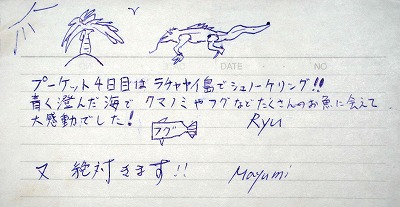 DATE NO
プーケット4日目はラチャヤイ島でシュノーケリング!!
青く澄んだ海でクマノミやフグなどたくさんのお魚に会えて
大感動でした!
フグ
Ryu
又 絶対きます!!
Mayumi